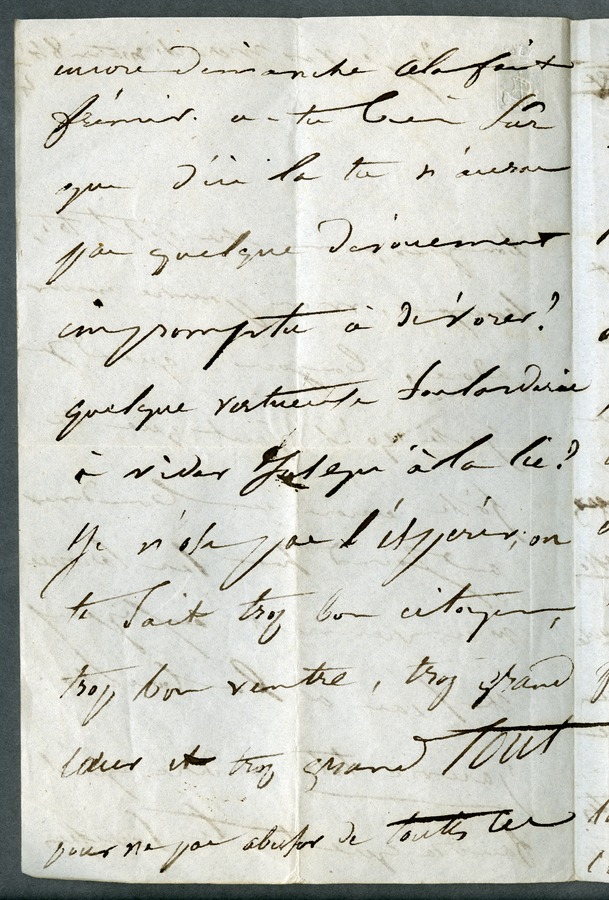 encore dimanche cela fait
frémir. a-tu bien sur
que d'ici la tu n'auras
pas quelque dévouement
impromptu à dévorer?
quelque vertueuse soularderie
à vider jusequ'à la lie?
Je n'ose pas l'éspérer, on
te sait trop bon citoyen,
trop bon ventre, trop grand
cœur et trop grand TOUT
pour ne pas abuser de toutes ces